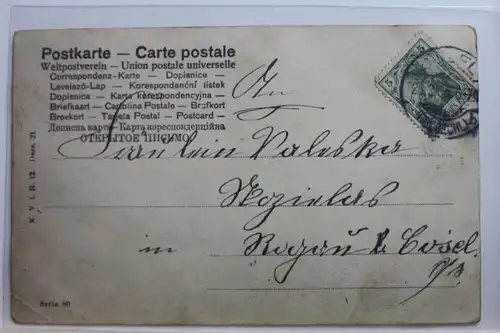 Postkarte — Carte postale
Weltpostverein — Union postale universelle
Correspondenz-Karte — Dopisnice
Levelező-Lap — Korespondenční lístek
Dopisnica — Karta korespondencyjna
Briefkaart — Cartolina Postale — Brefkort
Brevkort — Tarjeta Postal — Postcard —
Дописна карта — Карта кореспонденційна
ОТКРЫТОЕ ПИСЬМО
An
Fräulein Valeska
in Rogau b. Cosel
O/S.
5
5
Serie 80